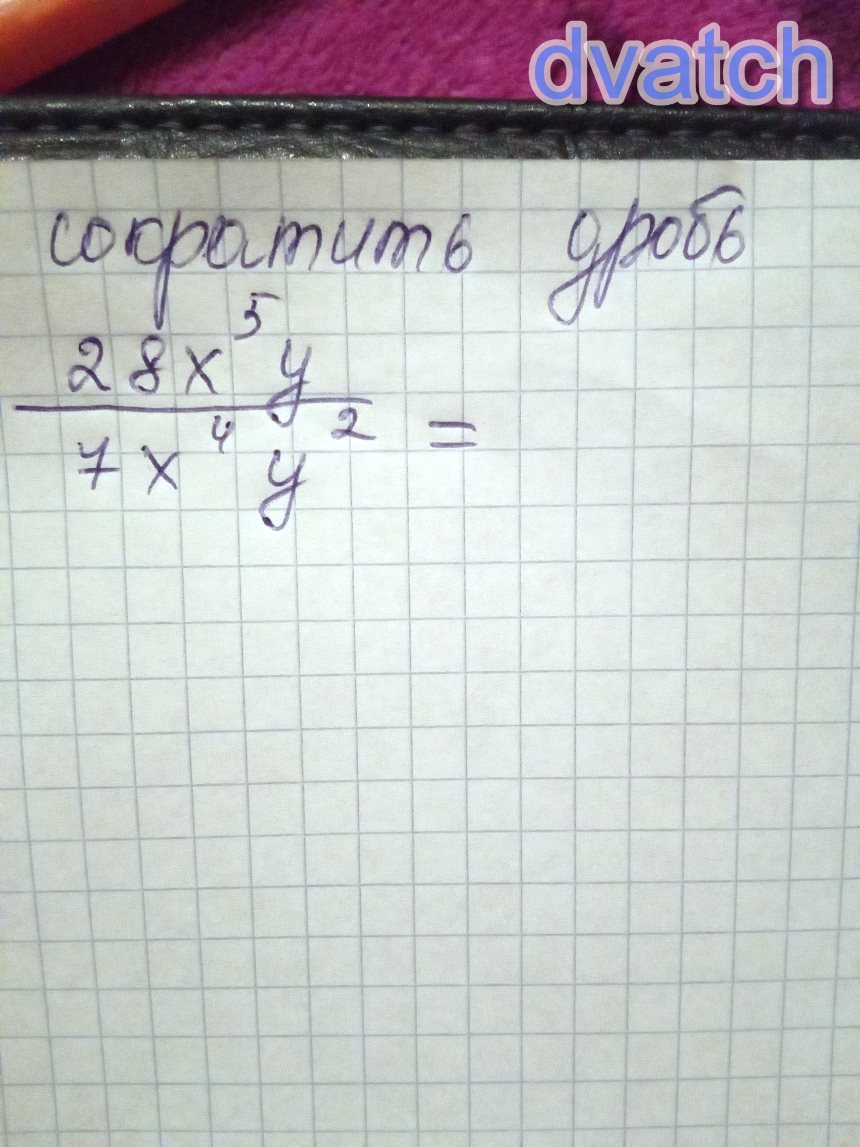 dvatch
сократить дробь
28x⁵y
7x⁴y² =